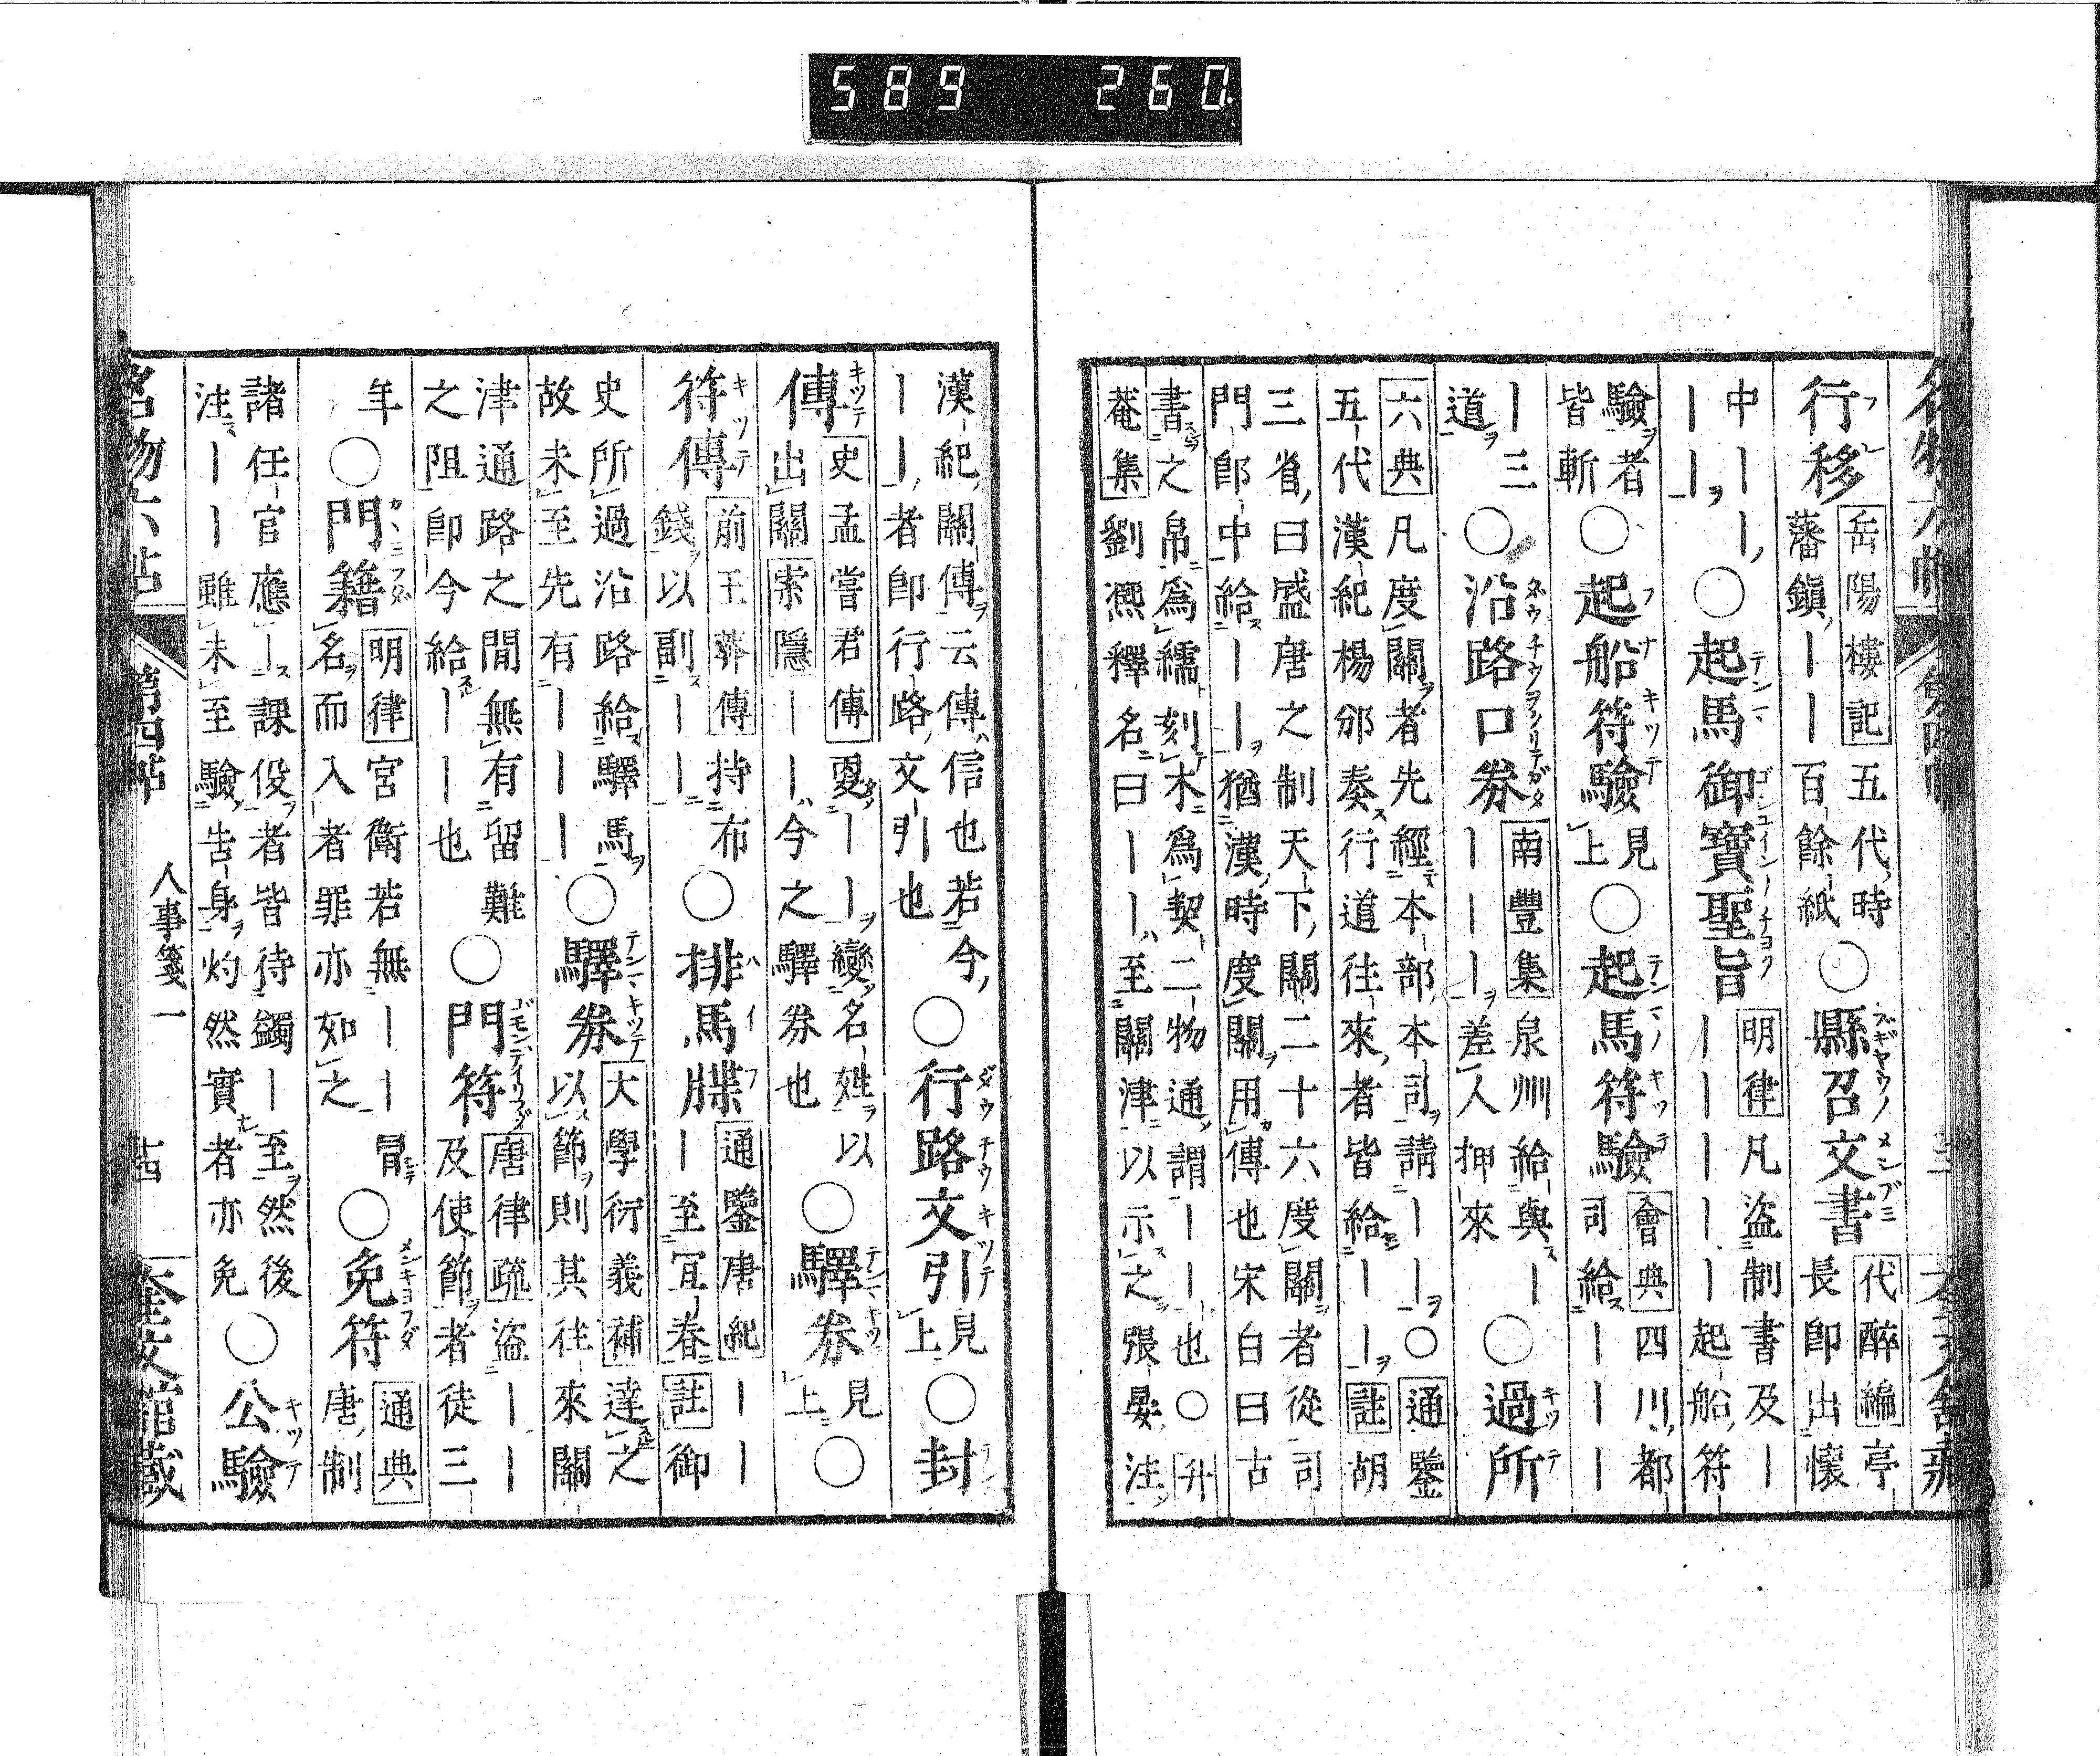 589 260
行移 岳陽樓記 五代時
藩鎭丨丨百餘紙 ○縣召文書 代醉編 亭
長卽出懷
中丨丨丨 ○起馬御寶聖旨 明律 凡盜制書及丨
丨丨 丨丨丨丨丨起船符
驗者
皆斬 ○起船符驗 見上 ○起馬符驗 會典 四川都
司給丨丨丨
丨三
道 ○沿路口券 南豐集 泉州給與丨
丨丨丨差人押來 ○過所
六典 凡度關者先經本部本司請丨丨 ○通鑒
五代漢紀楊邠奏行道往來者皆給丨丨 註 胡
三省曰盛唐之制天下關二十六度關者從司
門郎中給丨丨猶漢時度關用傳也宋白曰古
書之帛爲繻刻木爲契二物通謂丨丨也 ○升
菴集 劉熈釋名曰丨丨至關津以示之張晏注
漢紀關傳云傳信也若今
丨丨者卽行路文引也 ○行路文引 見上 ○封
傳 史孟嘗君傳 更丨丨變名姓以
出關 索隱 丨丨今之驛券也 ○驛券 見上 ○
符傳 前王莽傳 持布
錢以副丨丨 ○排馬牒 通鑒唐紀 丨丨
丨至宜春 註 御
史所過沿路給驛馬
故未至先有丨丨丨 ○驛券 大學衍義補 達之
以節則其往來關
津通路之閒無有留難
之阻卽今給丨丨也 ○門符 唐律疏 盜丨丨
及使節者徒三
年 ○門籍 明律 宮衛若無丨丨冒
名而入者罪亦如之 ○免符 通典
唐制
諸任官應丨課役者皆待蠲丨至然後
注丨丨雖未至驗告身灼然實者亦免 ○公驗
名物六帖 第四帖 人事箋一 奎文館藏